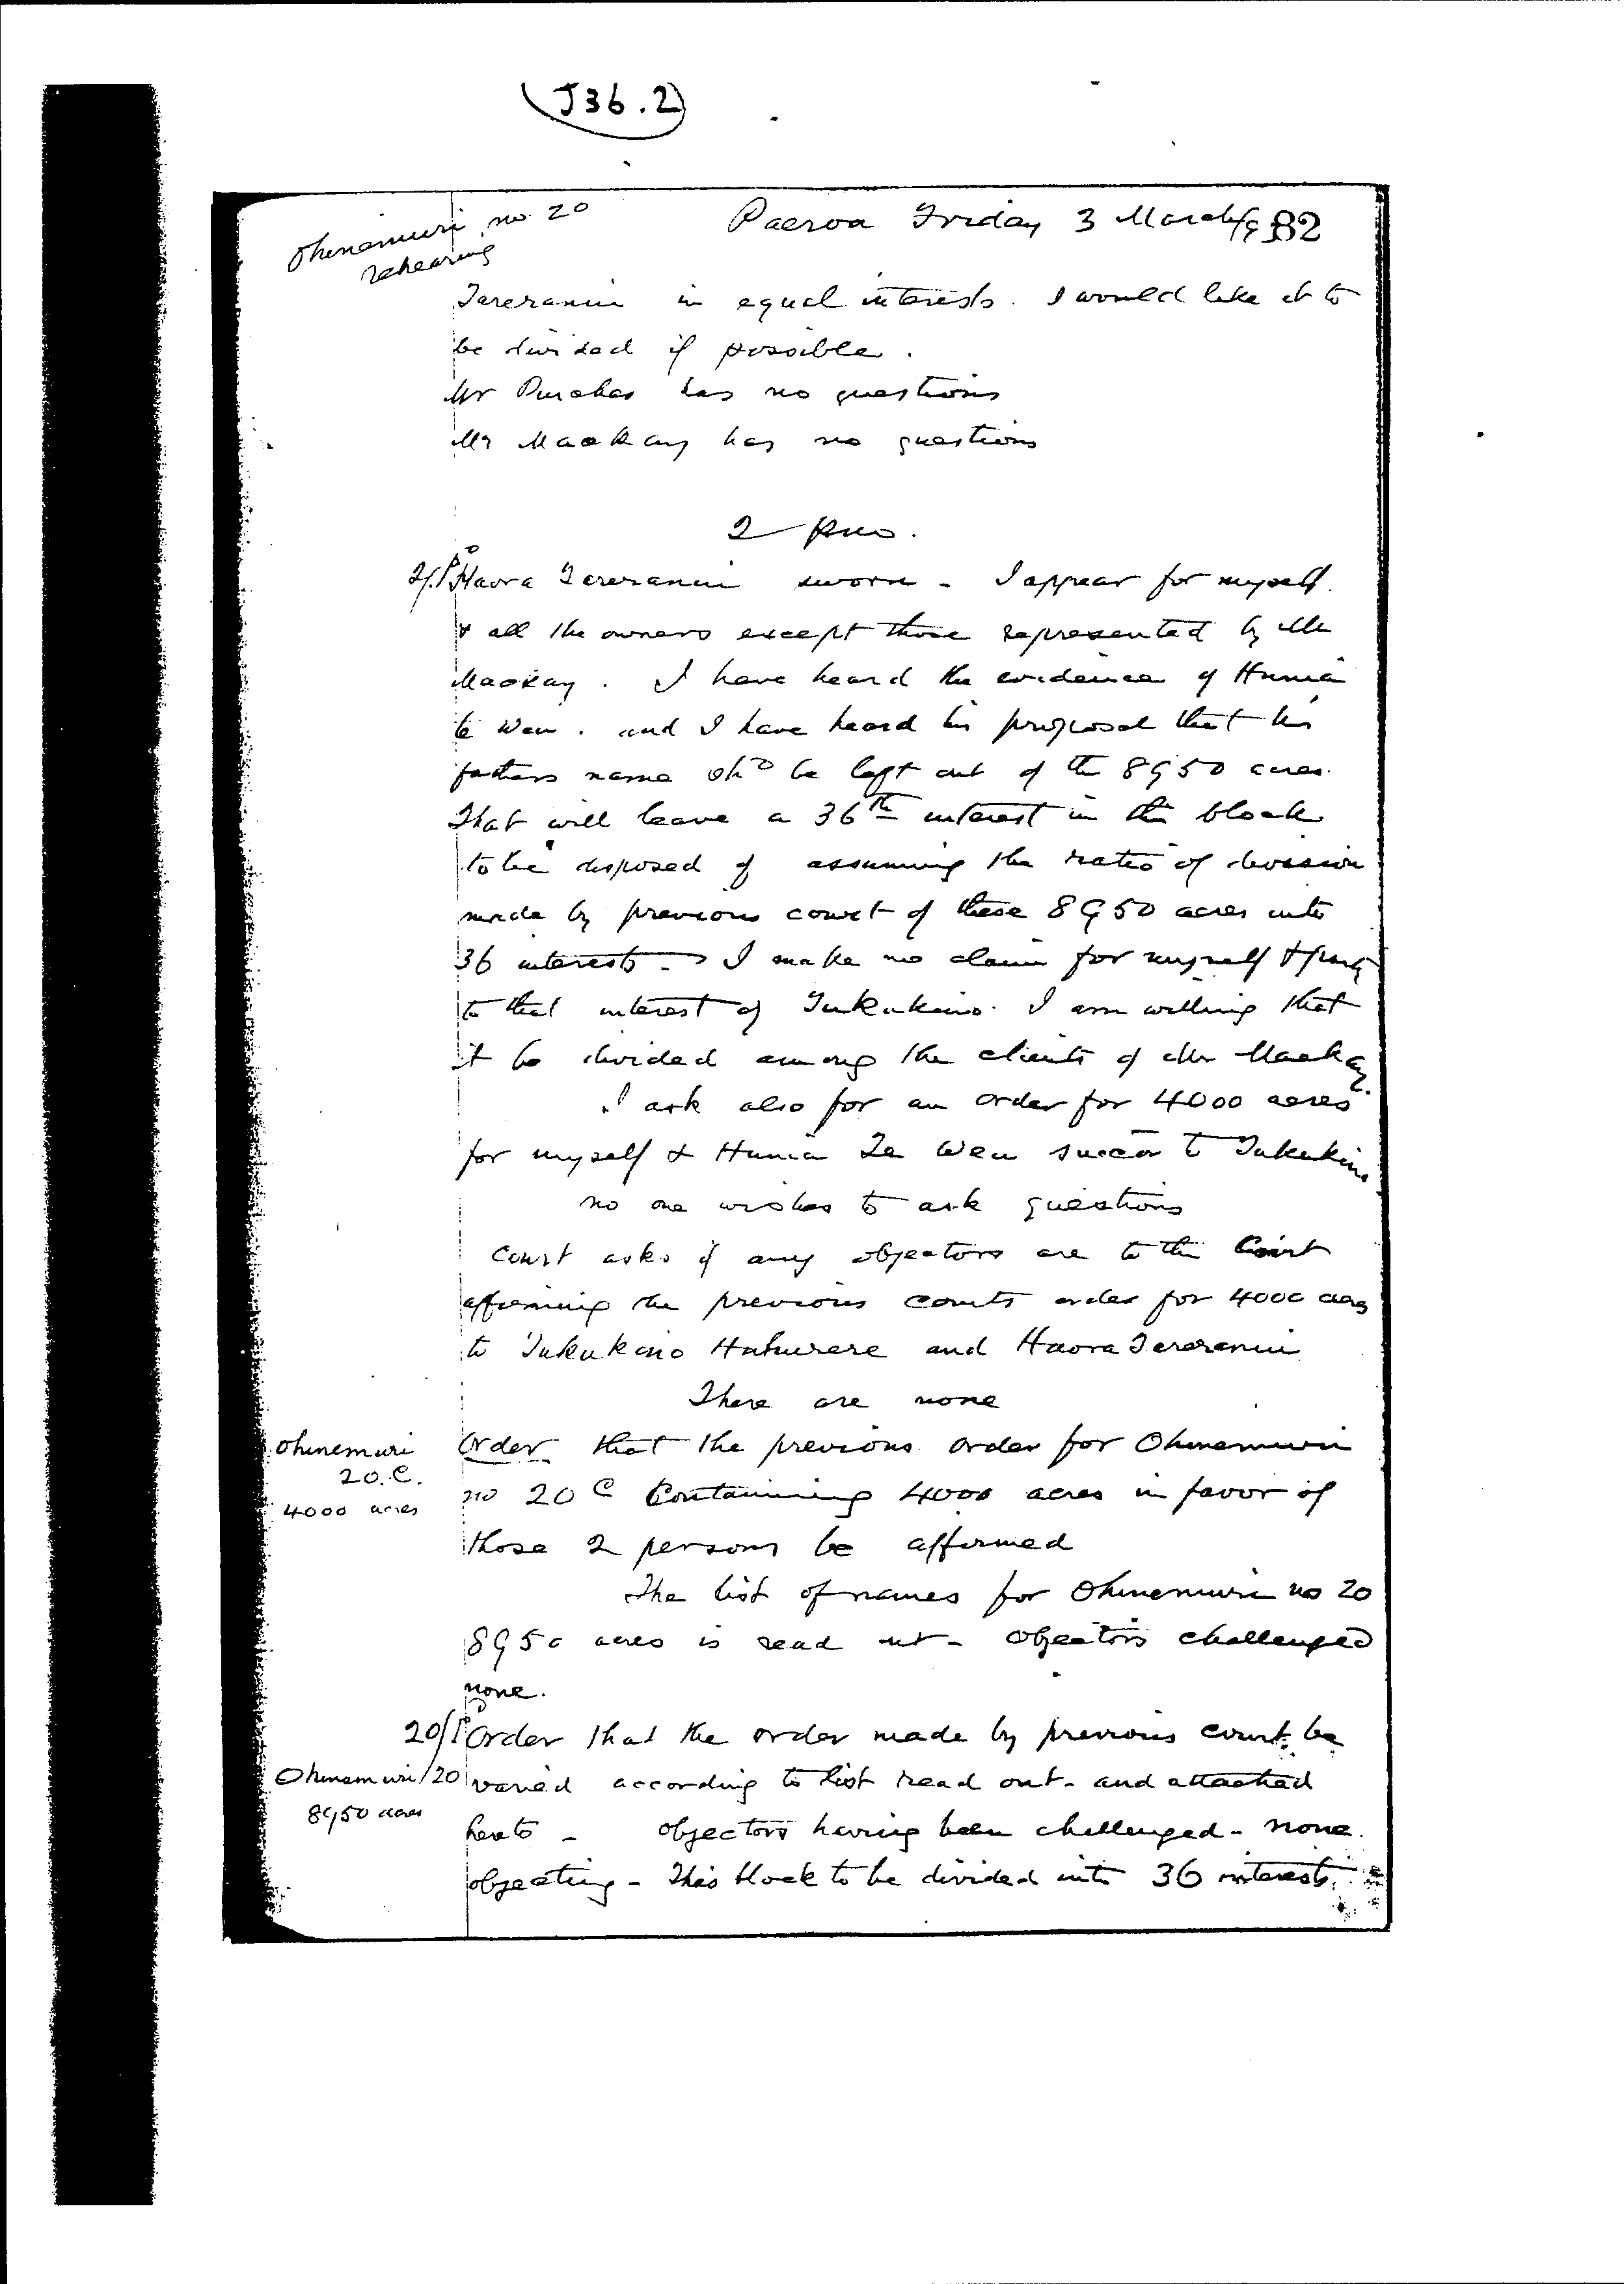 (J36.2)
Ohinemuri no 20
rehearing
Paeroa Friday 3 March/93
82
Tareranui in equal interests. I would like it to
be divided if possible.
Mr Purchas has no questions
Mr MacKay has no questions
2 pm.
Haora Tareranui sworn - I appear for myself
& all the owners except those represented by Mr
Mackay. I have heard the evidence of Hunia
te Weu. and I have heard his proposal that his
fathers name shd be left out of the 8950 acres.
That will leave a 36th interest in this block
to be disposed of assuming the ratio of division
made by previous court of these 8950 acres into
36 interests - I make no claim for myself & party
to that interest of Tukukino. I am willing that
it be divided among the clients of Mr Mackay.
I ask also for an order for 4000 acres
for myself & Hunia Te Weu succor to Tukukino
no one wishes to ask questions
Court asks if any objectors are to the Court
affirming the previous courts order for 4000 acres
to Tukukino Hahurere and Haora Tareranui
There are none
Ohinemuri
20.C.
4000 acres
Order that the previous order for Ohinemuri
no 20 C Containing 4000 acres in favor of
those 2 persons be affirmed
The list of names for Ohinemuri no 20
8950 acres is read out - Objectors challenged
none.
20/
Order that the order made by previous court be
Ohinemuri/20
8950 acres
varied according to list read out - and attached
hereto - objectors having been challenged - none
objecting - This block to be divided into 36 interests.